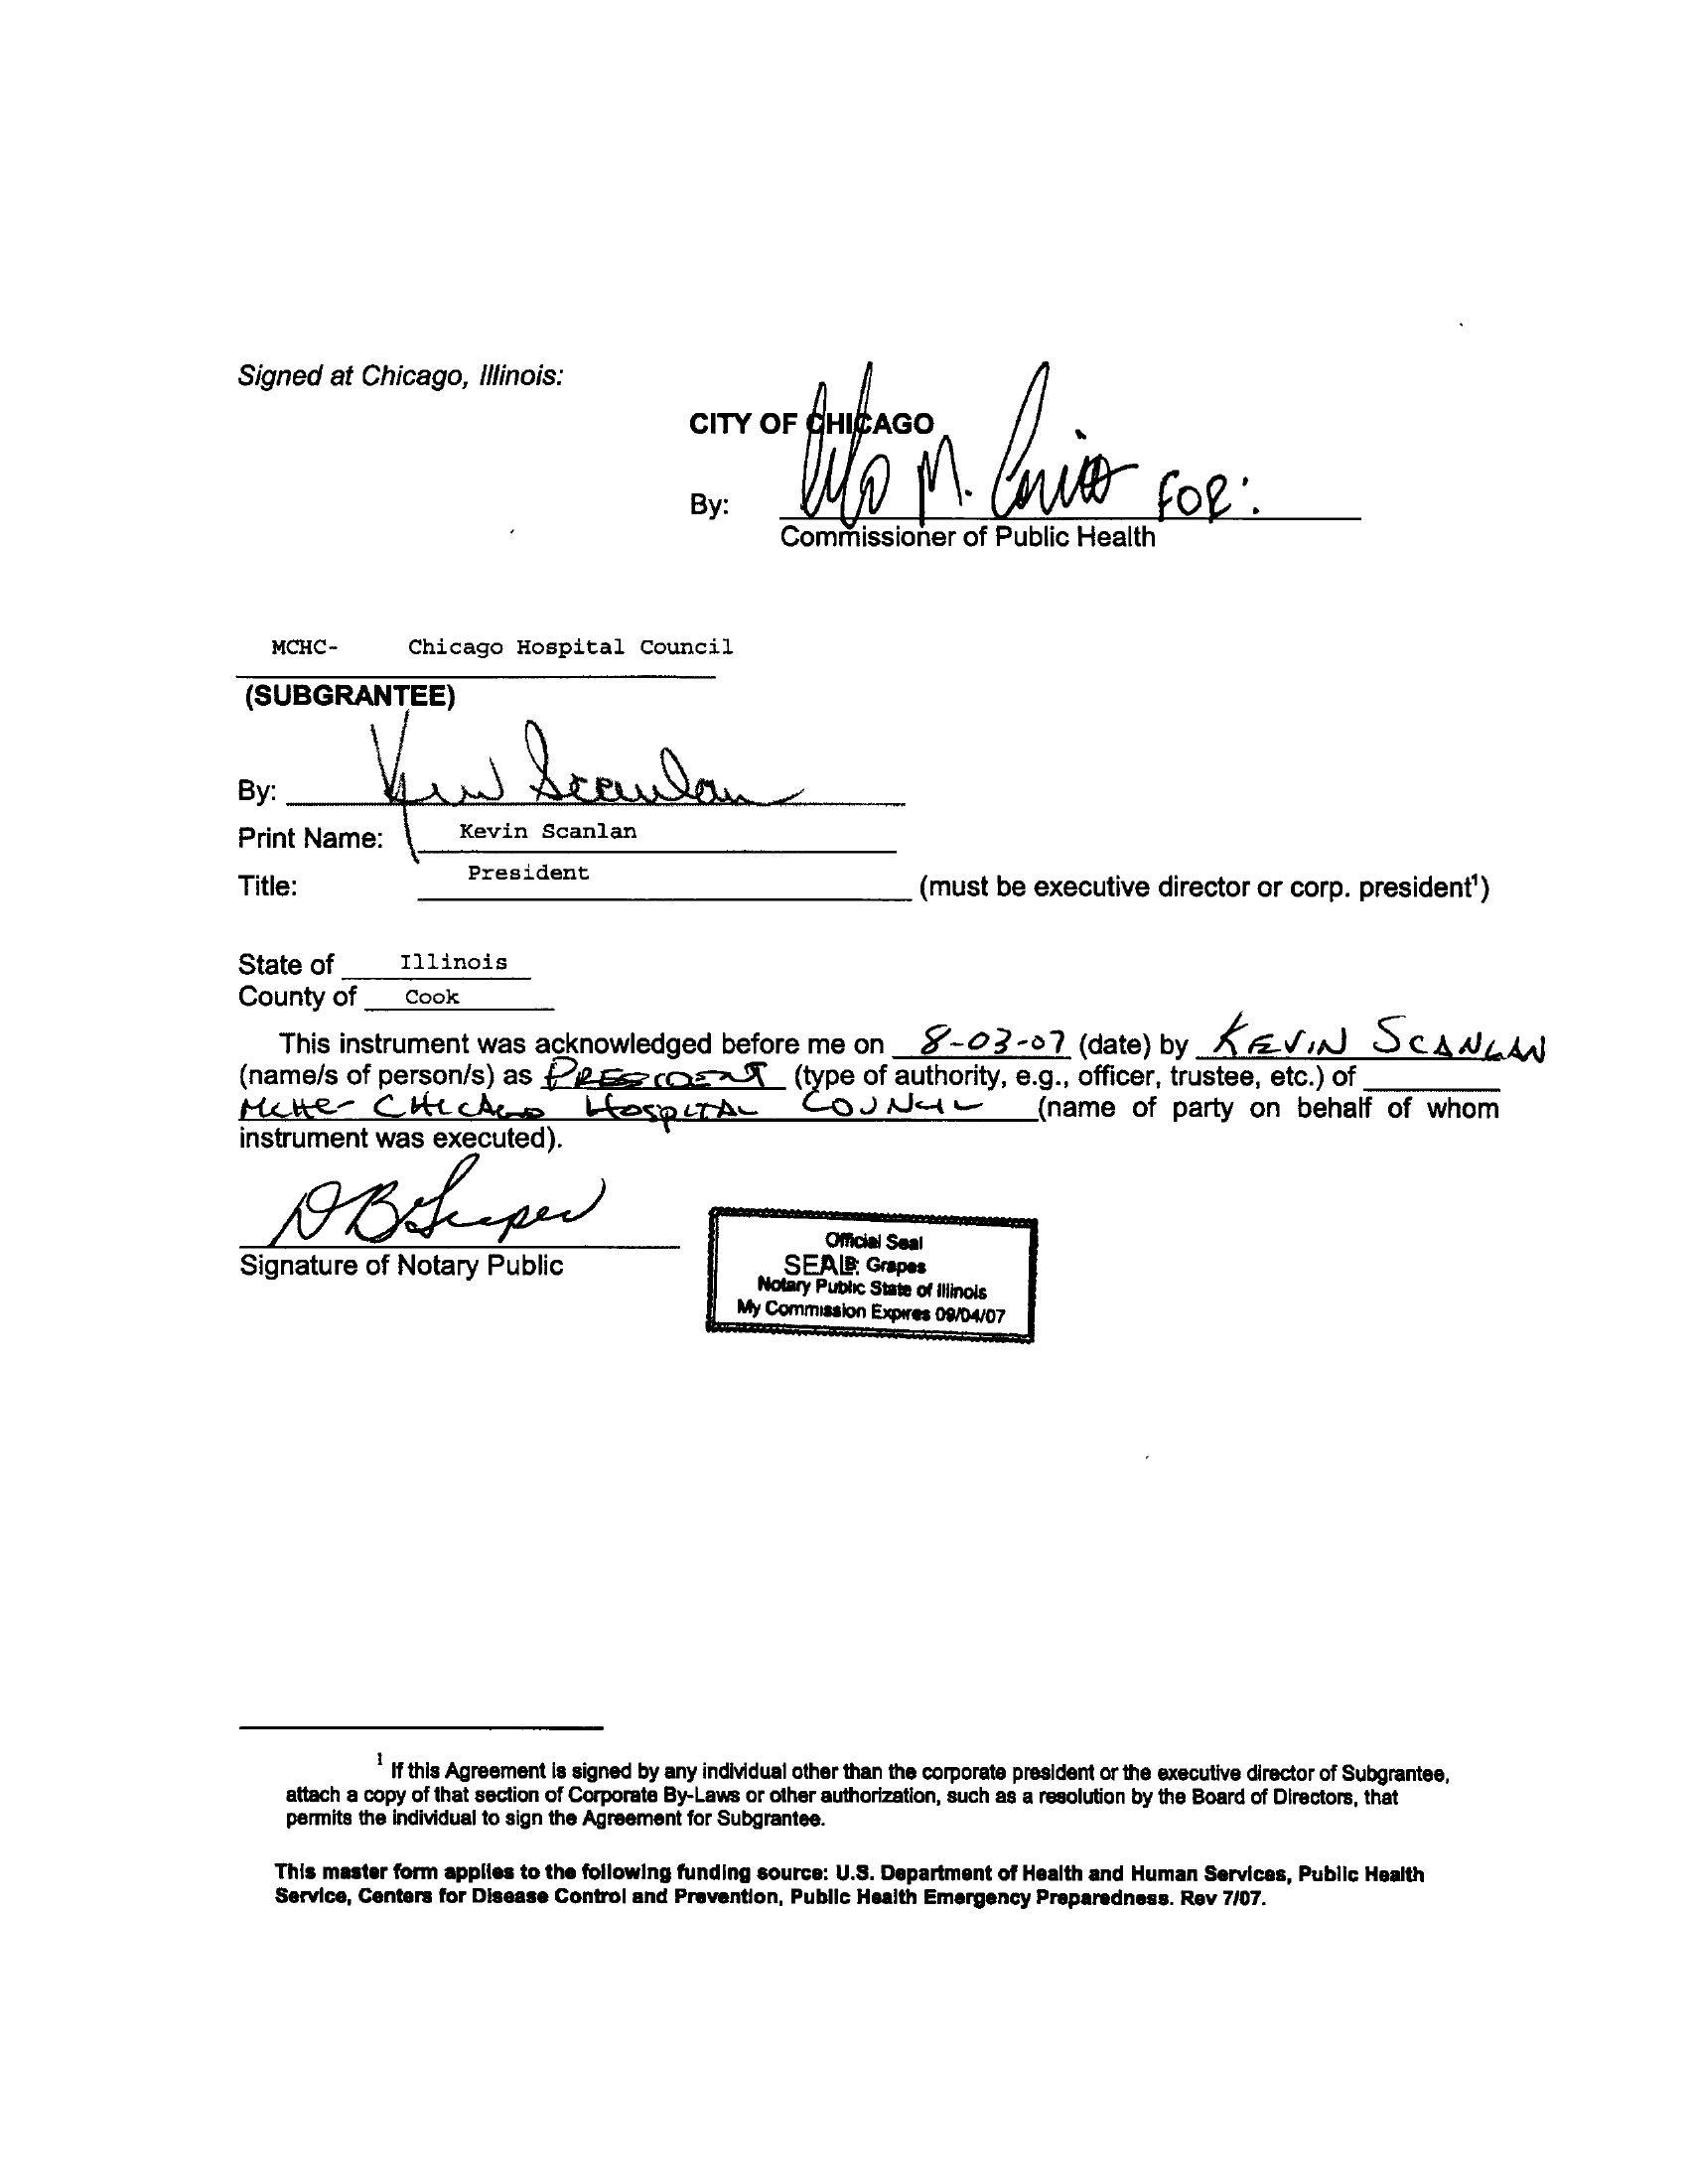 Signed at Chicago, Illinois:
CITY OF CHICAGO
By: M. FOR:
Commissioner of Public Health
MCHC- Chicago Hospital Council
(SUBGRANTEE)
By: Kevin Scanlan
Print Name: Kevin Scanlan
Title: President (must be executive director or corp. president¹)
State of Illinois
County of Cook
This instrument was acknowledged before me on 8-03-07 (date) by KEVIN SCANLAN
(name/s of person/s) as PRESIDENT (type of authority, e.g., officer, trustee, etc.) of
MCHC- CHICAGO HOSPITAL COUNCIL (name of party on behalf of whom
instrument was executed).
Signature of Notary Public
Official Seal
SEAL B. Grapes
Notary Public State of Illinois
My Commission Expires 09/04/07
¹ If this Agreement is signed by any individual other than the corporate president or the executive director of Subgrantee,
attach a copy of that section of Corporate By-Laws or other authorization, such as a resolution by the Board of Directors, that
permits the individual to sign the Agreement for Subgrantee.
This master form applies to the following funding source: U.S. Department of Health and Human Services, Public Health
Service, Centers for Disease Control and Prevention, Public Health Emergency Preparedness. Rev 7/07.